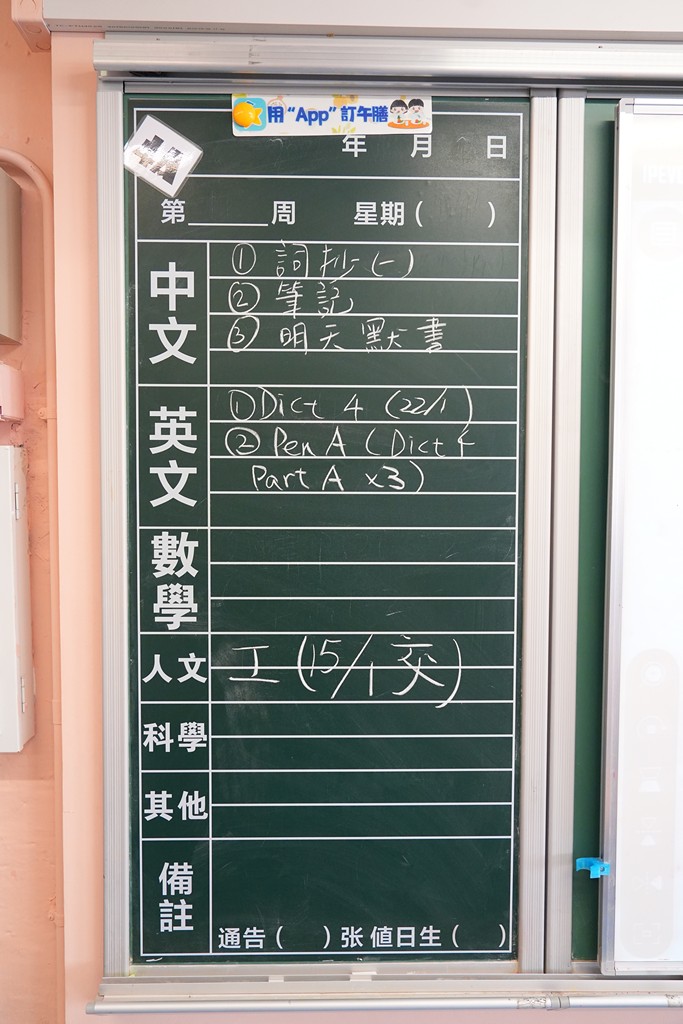 用“App”訂午膳
年 月 日
第______周 星期( )
中文
① 詞抄(一)
② 筆記
③ 明天默書
英文
① Dict 4 (22/1)
② Pen A (Dict 4
Part A x3)
數學
人文
工(15/1交)
科學
其他
備註
通告( )张 值日生( )